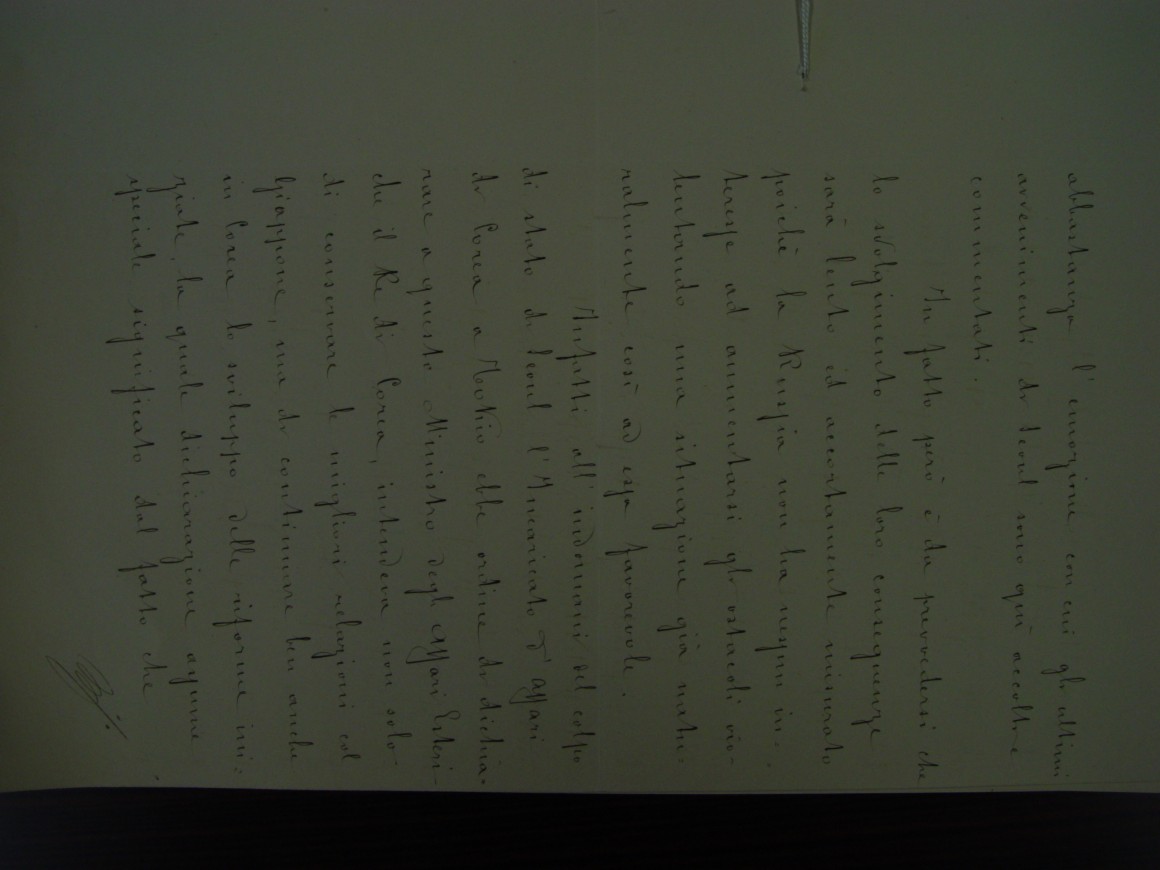 abbastanza l'emozione con cui gli ultimi
avvenimenti di Seoul sono quì accolti e
commentati.
In fatto però è da prevedersi che
lo svolgimento delle loro conseguenze
sarà lento ed accortamente misurato
poichè la Russia non ha nessun in-
teresse ad aumentarsi gli ostacoli vio-
lentando una situazione già natu-
ralmente così ad essa favorevole.
Infatti all'indomani del colpo
di stato di Seoul l'Incaricato d'affari
di Corea a Tokio ebbe ordine di dichia-
rare a questo Ministro degli Affari Esteri
che il Re di Corea, intendeva non solo
di conservare le migliori relazioni col
Giappone, ma di continuare ben anche
in Corea lo sviluppo delle riforme ini-
ziate, la quale dichiarazione assume
speciale significato dal fatto che